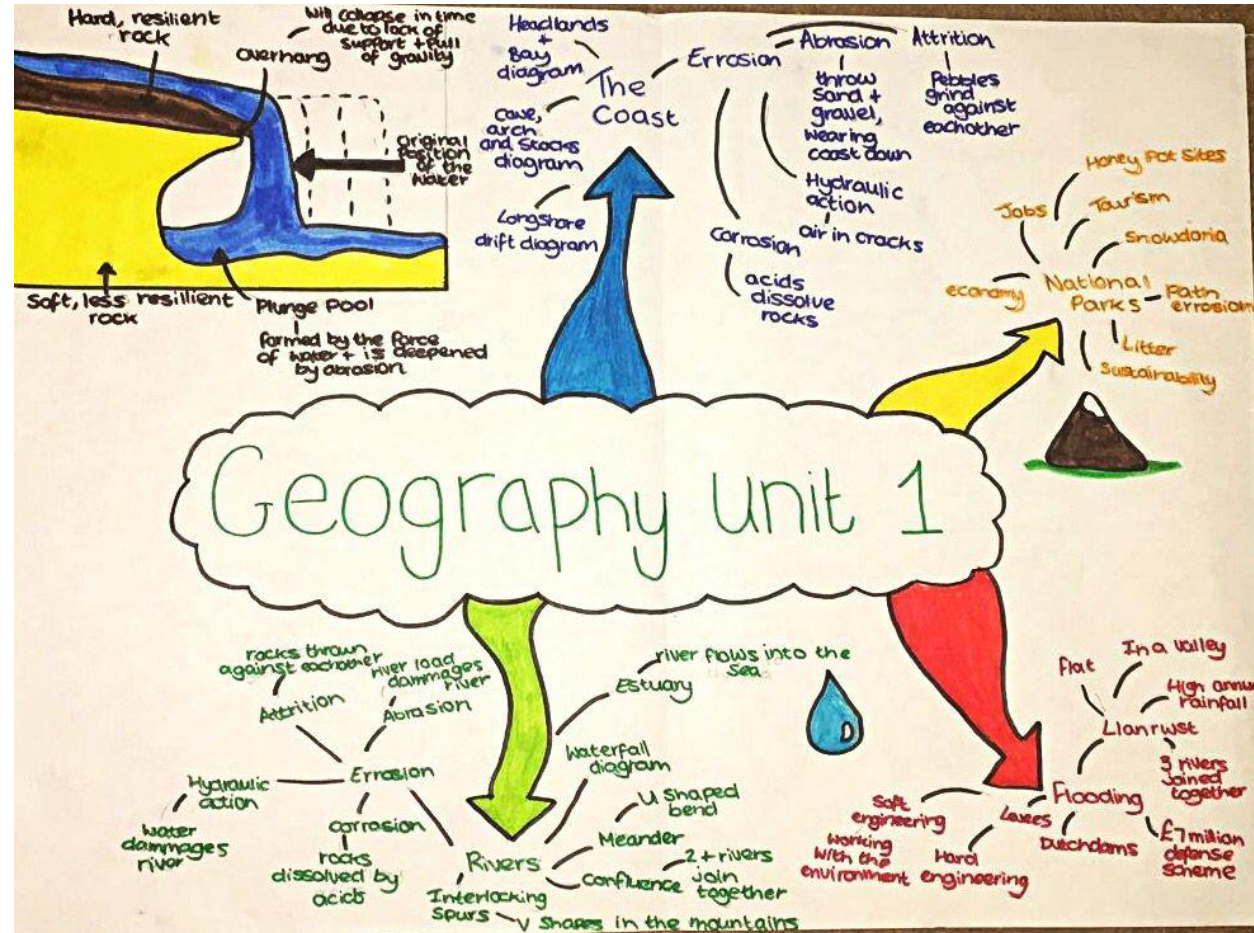 Hard, resilient
rock
overhang
will collapse in time
due to lack of
support + pull
of gravity
original
position
of the
water
Soft, less resillient
rock
Plunge Pool
formed by the force
of water + is deepened
by abrasion
The
Coast
Headlands
+
Bay
diagram
cave,
arch
and stacks
diagram
Longshore
drift diagram
Errosion
Abrasion
throw
Sand +
gravel,
wearing
coast down
Attrition
Pebbles
grind
against
eachother
Hydraulic
action
air in cracks
Corrosion
acids
dissolve
rocks
National
Parks
Honey Pot Sites
Jobs
Tourism
Snowdonia
economy
Path
errosion
Litter
Sustainability
Geography unit 1
Rivers
Errosion
Attrition
rocks thrown
against eachother
Abrasion
river load
dammages
river
Hydraulic
action
water
dammages
river
corrosion
rocks
dissolved by
acids
Estuary
river flows into the
Sea
Waterfall
diagram
Meander
U shaped
bend
Confluence
2 + rivers
join
together
Interlocking
Spurs
V shapes in the mountains
Flooding
Llanrwst
flat
In a valley
High annu
rainfall
3 rivers
joined
together
£7 million
defense
scheme
Dutchdams
Levees
Hard
engineering
Soft
engineering
working
with the
environment